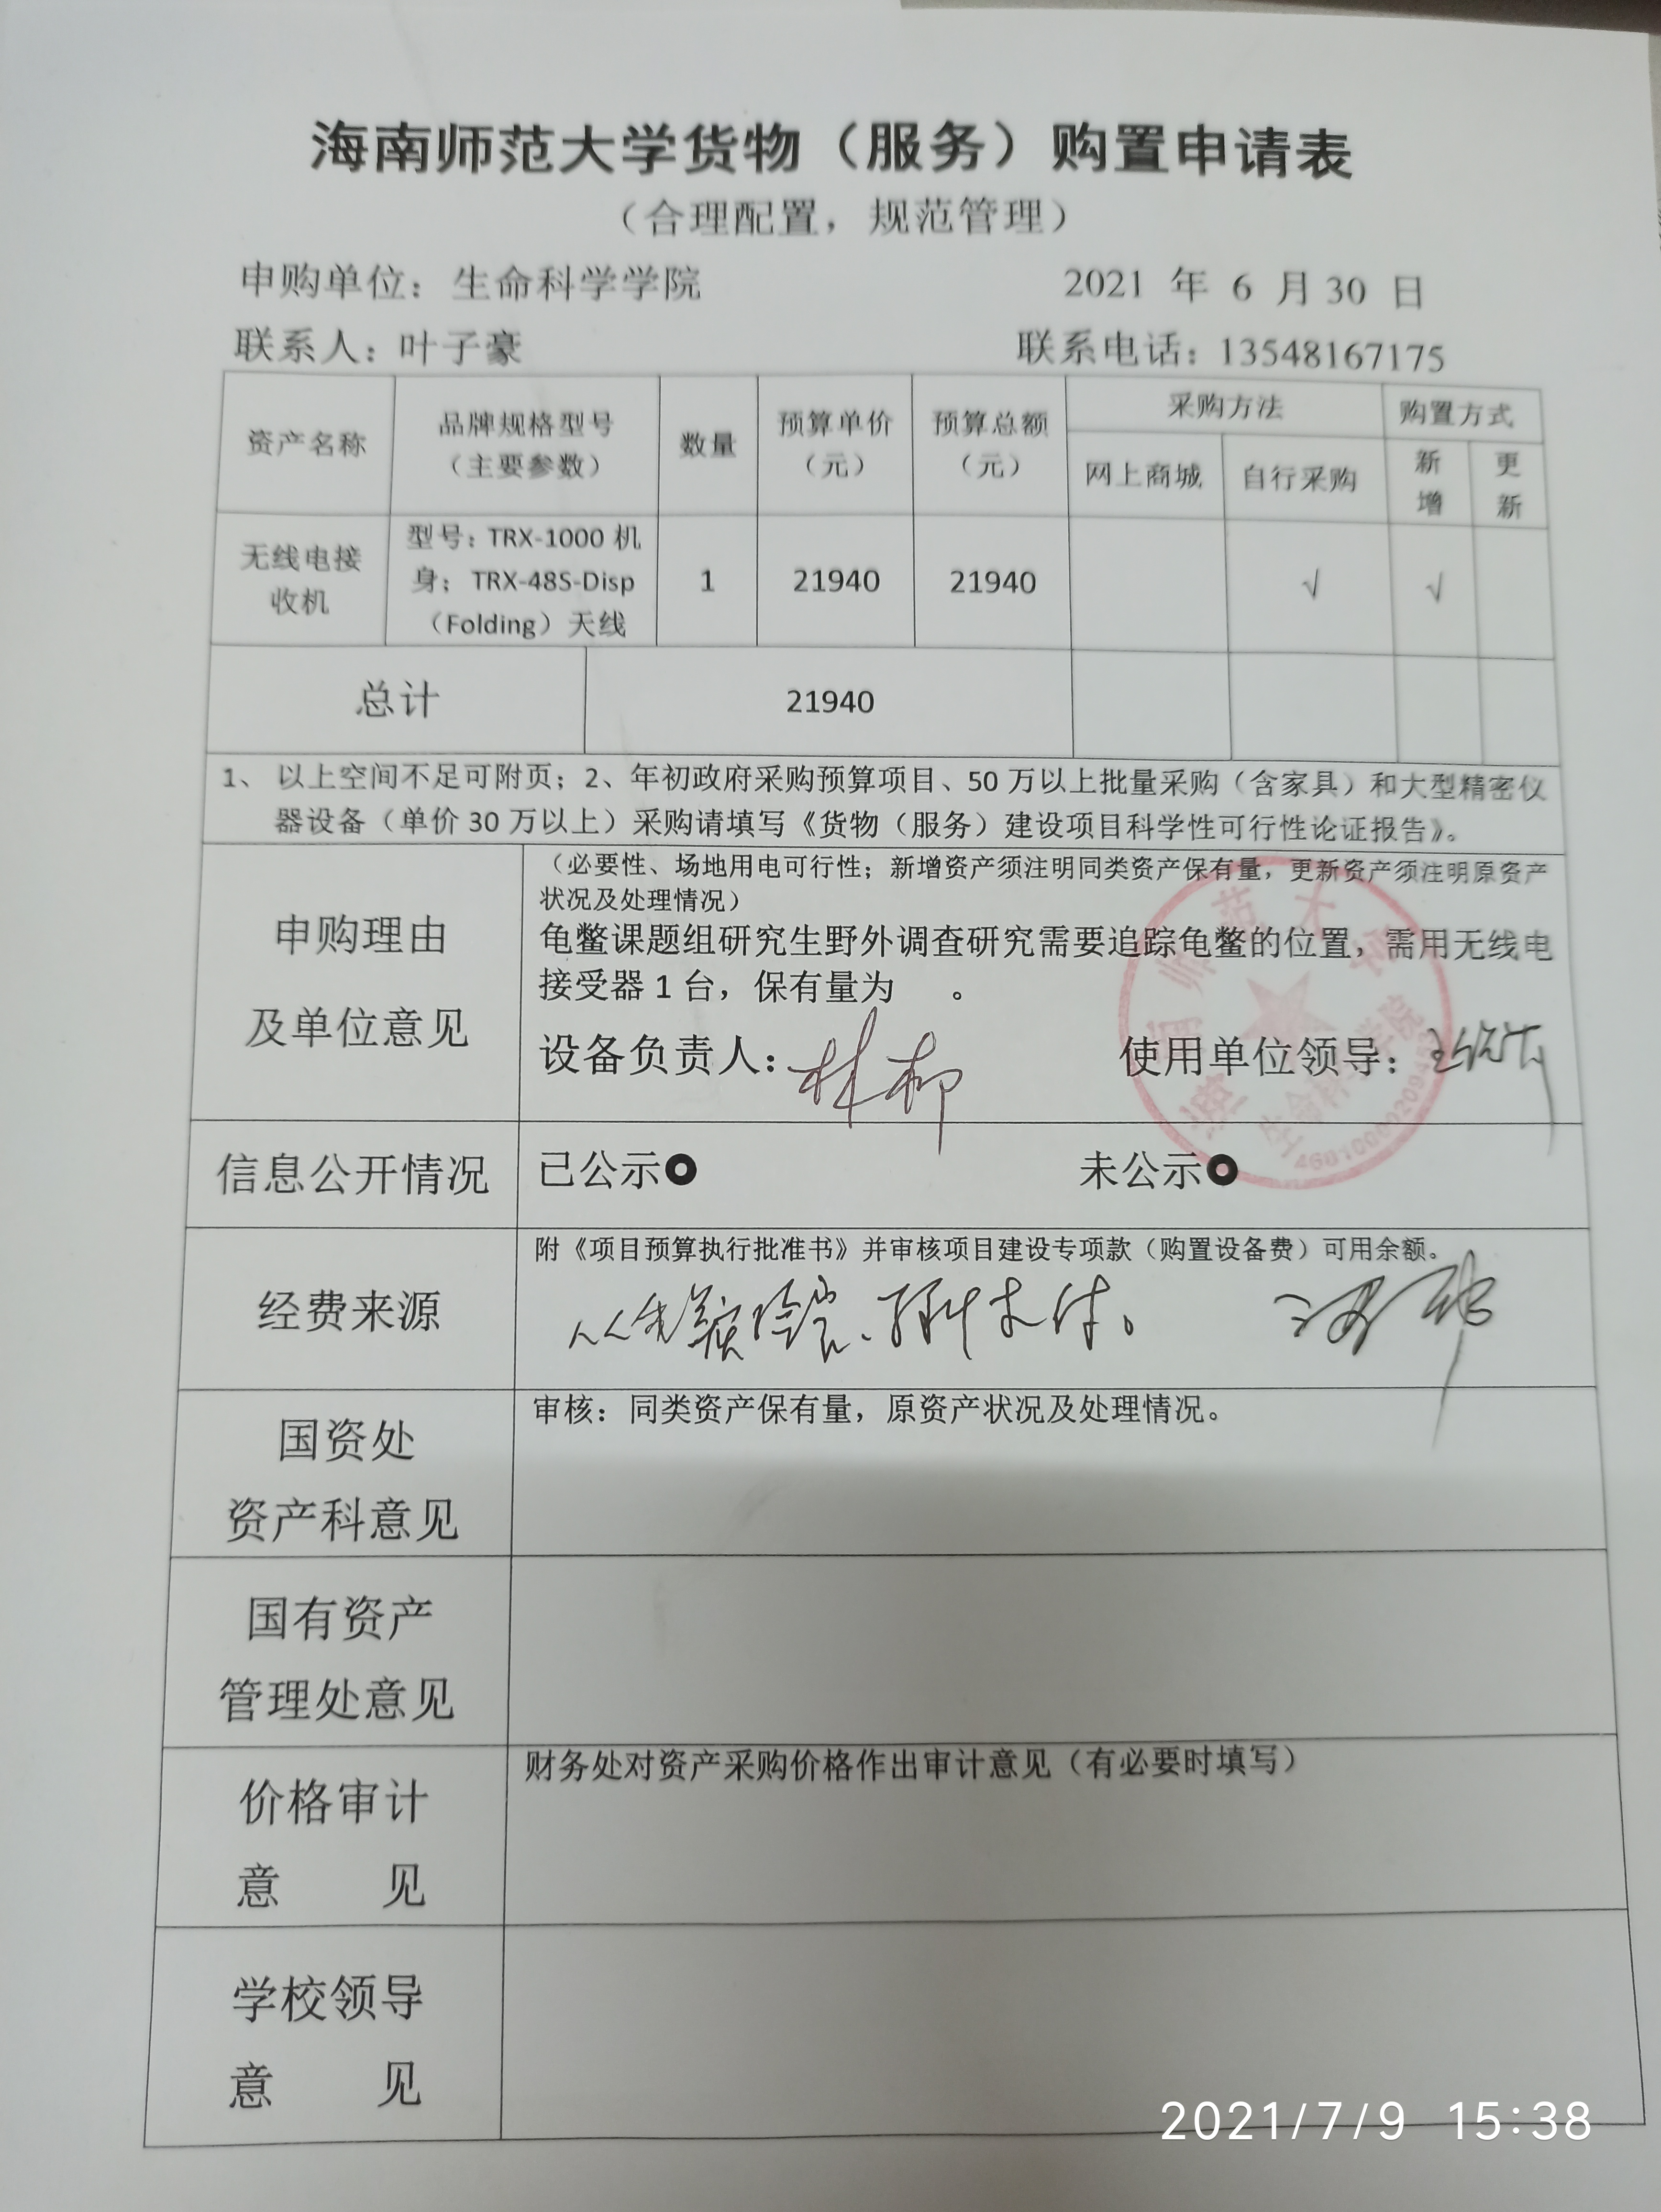 海南师范大学货物（服务）购置申请表
（合理配置，规范管理）
申购单位：生命科学学院 2021 年 6 月 30 日
联系人：叶子豪 联系电话：13548167175
资产名称 品牌规格型号（主要参数） 数量 预算单价（元） 预算总额（元） 采购方法 购置方式
网上商城 自行采购 新增 更新
无线电接收机 型号：TRX-1000 机身；TRX-48S-Disp（Folding）天线 1 21940 21940 √ √
总计 21940
1、以上空间不足可附页；2、年初政府采购预算项目、50 万以上批量采购（含家具）和大型精密仪
器设备（单价 30 万以上）采购请填写《货物（服务）建设项目科学性可行性论证报告》。
申购理由
及单位意见
（必要性、场地用电可行性；新增资产须注明同类资产保有量，更新资产须注明原资产
状况及处理情况）
龟鳖课题组研究生野外调查研究需要追踪龟鳖的位置，需用无线电
接受器 1 台，保有量为 。
设备负责人： 使用单位领导：
海南师范大学
生命科学学院
信息公开情况 已公示 未公示
经费来源
附《项目预算执行批准书》并审核项目建设专项款（购置设备费）可用余额。
国资处
资产科意见
审核：同类资产保有量，原资产状况及处理情况。
国有资产
管理处意见
价格审计
意 见
财务处对资产采购价格作出审计意见（有必要时填写）
学校领导
意 见
2021/7/9 15:38